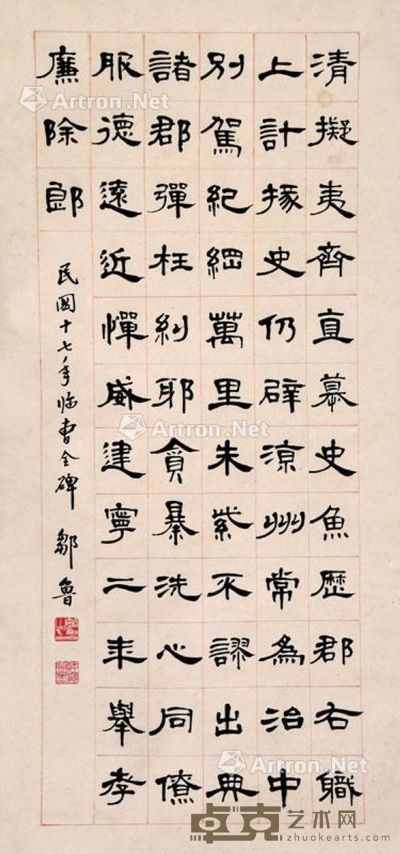 清擬夷齊直慕史魚歷郡右職
上計掾史仍辟涼州常為治中
別駕紀綱萬里朱紫不謬出典
諸郡彈枉糾邪貪暴洗心同僚
服德遠近憚威建寧二年舉孝
廉除郎
民國十七年临曹全碑 鄒魯
Artron.Net
Artron.Net
Artron.Net
Artron.Net
Artron.Net
Artron.Net
卓克艺术网
zhuokearts.com